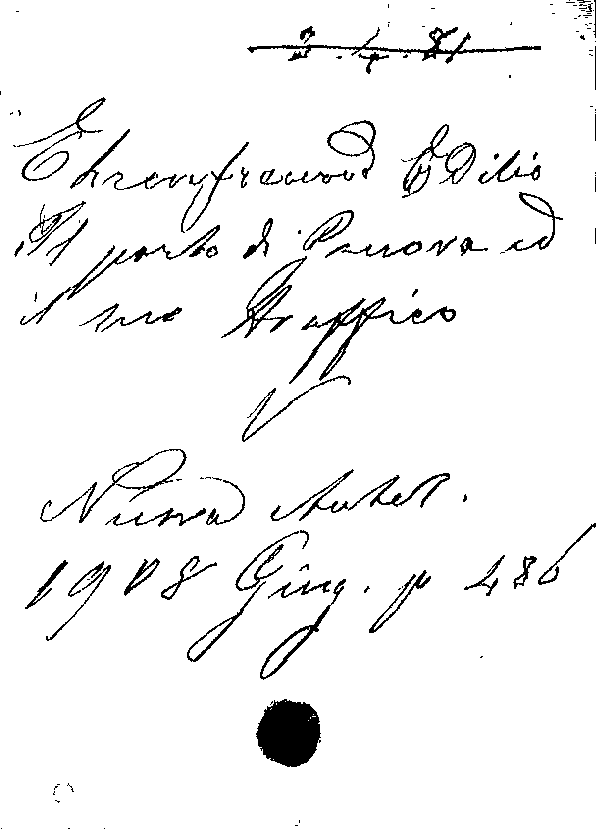 2.4.81
Ehrenfreund Edilio
Il porto di Genova ed
il suo traffico
V
Nuova Antol.
1908 Giug. p 486